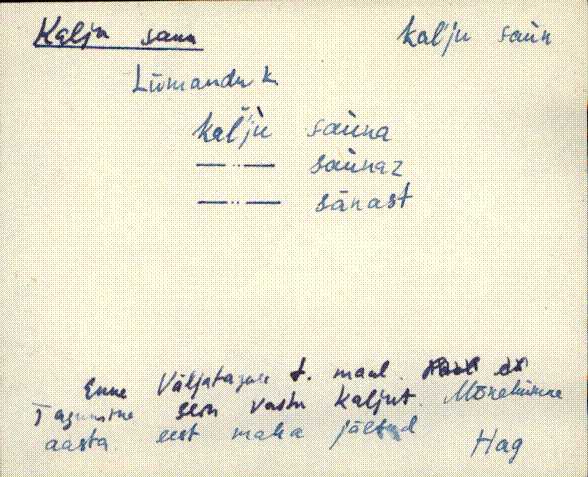 Kalju saun kal'ju saùn
Liimandu k.
kal'ju saùna
—..— saùnaz
—..— sānast
Enne Väljataguse t. maal.
Tagumine sein vastu kaljut. Mõnekümne
aasta eest maha jäetud
Hag